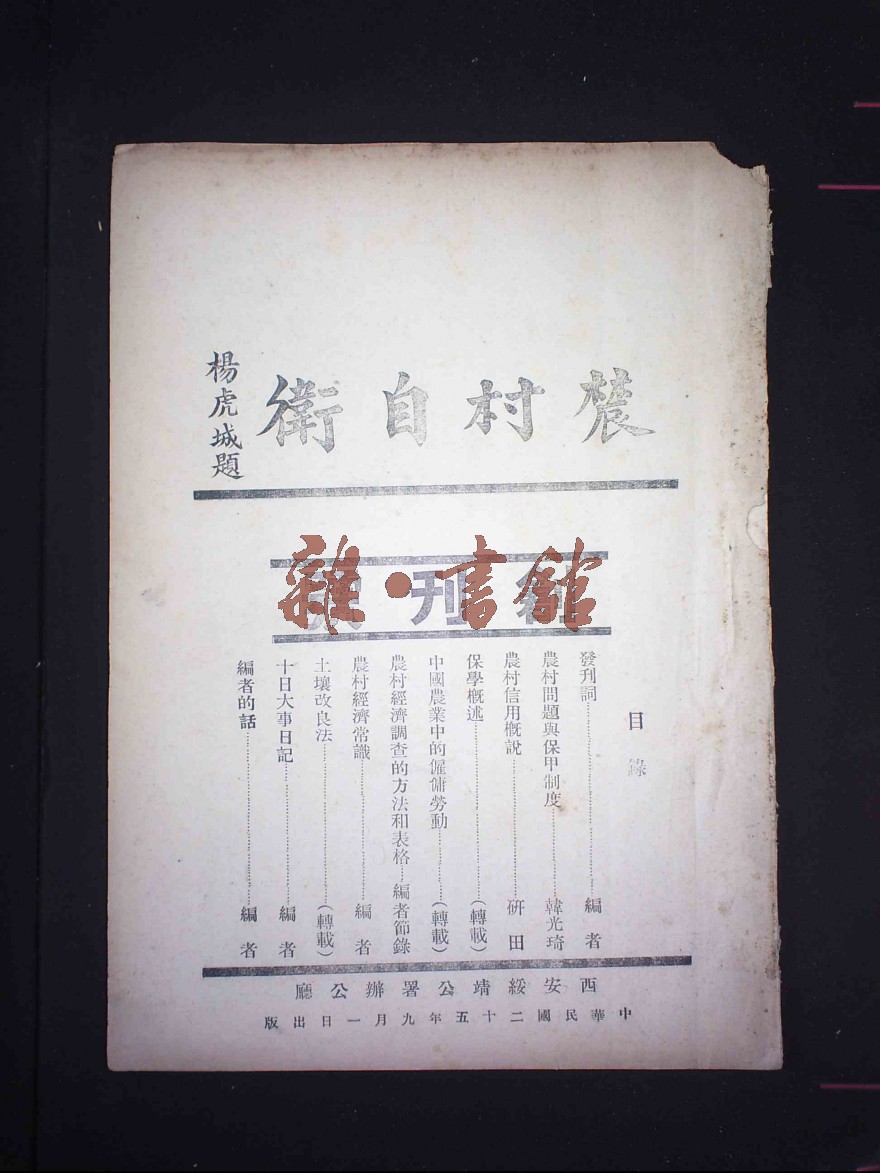 農村自衛
楊虎城題
創刊號
雜·書館
目錄
發刊詞……編者
農村問題與保甲制度……韓光琦
農村信用概說……研田
保學概述……(轉載)
中國農業中的僱傭勞動……(轉載)
農村經濟調查的方法和表格……編者節錄
農村經濟常識……編者
土壤改良法……(轉載)
十日大事日記……編者
編者的話……編者
西安綏靖公署辦公廳
中華民國二十五年九月一日出版